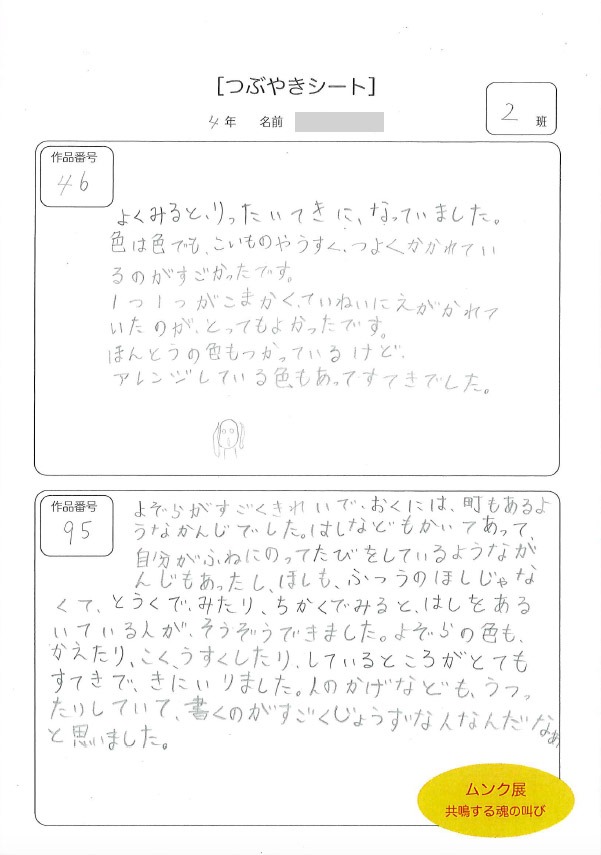 [つぶやきシート]
4年 名前
2 班
作品番号
46
よくみると、りったいてきに、なっていました。
色は色でも、こいものやうすく、つよくかかれてい
るのがすごかったです。
1つ1つがこまかく、ていねいにえがかれて
いたのが、とってもよかったです。
ほんとうの色もつかっているけど、
アレンジしている色もあってすてきでした。
作品番号
95
よぞらがすごくきれいで、おくには、町もあるよ
うなかんじでした。はしなどもかいてあって、
自分がふねにのってたびをしているようなが
んじもあったし、ほしも、ふつうのほしじゃな
くて、とうくで、みたり、ちかくでみると、はしをある
いている人が、そうぞうできました。よぞらの色も、
かえたり、こく、うすくしたり、しているところがとても
すてきで、きにいりました。人のかげなども、うつっ
たりしていて、書くのがすごくじょうずな人なんだなぁ
と思いました。
ムンク展
共鳴する魂の叫び